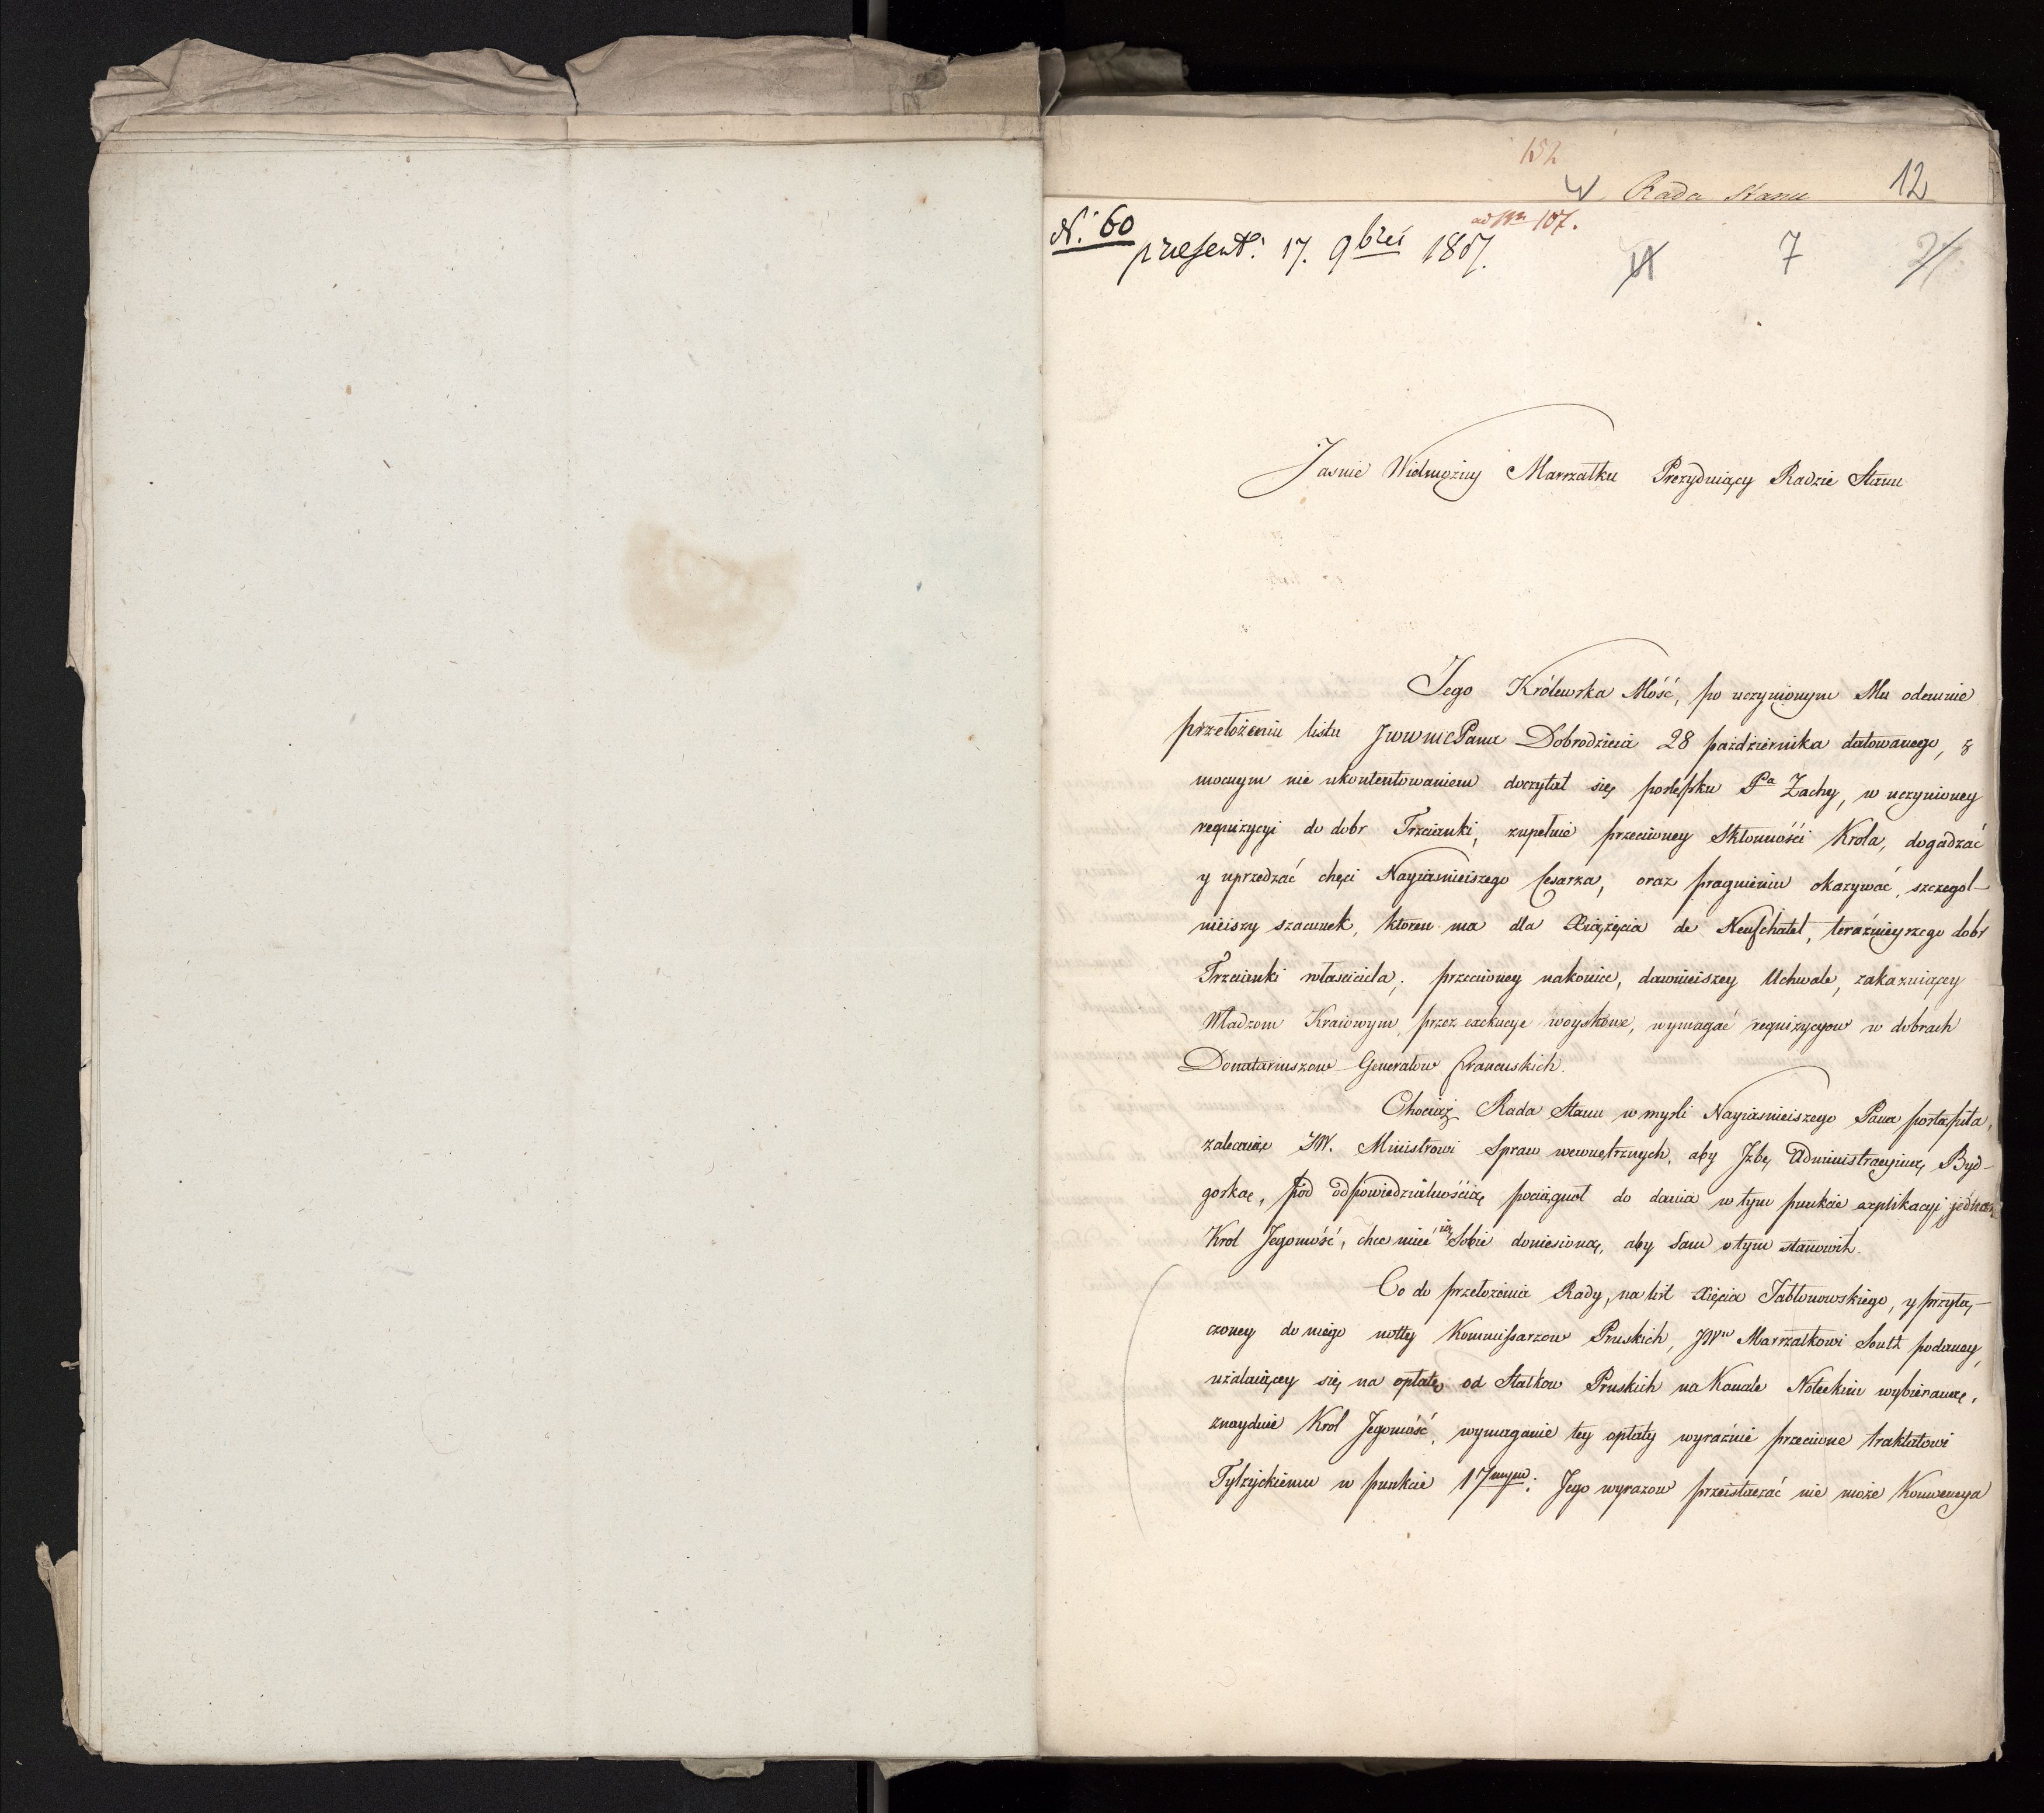 152
W Rada Stanu 12
N. 60 ad Nr 107.
præsent: 17. 9bris 1807. 7
Jasnie Wielmożny Marszałku Prezyduiący Radzie Stanu
Jego Królewska Mość, po uczynionym Mu odemnie
przełożeniu listu JWWmcPana Dobrodzieia 28 października datowanego, z
mocnym nie ukontentowaniem doczytał się postępku Pa Zachy, w uczynioney
requizycyi do dobr Trzcianki, zupełnie przeciwney Skłonności Krola, dogadzać
y uprzedzać chęci Nayiasnieiszego Cesarza, oraz pragnieniu okazywać, szczegol-
nieiszy szacunek, ktoren ma dla Xiążęcia de Neufchatel, teraźnieyszego dobr
Trzcianki własciciela; przeciwney nakoniec, dawnieiszey Uchwale, zakazuiącey
Władzom Kraiowym, przez exekucye woyskowe, wymagać requizycyow w dobrach
Donatariuszow Generałow francuskich.
Chociaż Rada Stanu w mysli Nayiasnieiszego Pana postąpiła,
zalecaiąc JW. Ministrowi Spraw wewnętrznych, aby Jzbę Administracyiną Byd-
goską, pod odpowiedzialnością pociągnoł do dania w tym punkcie explikacyi jednak
Krol Jegomość, chce mieć ią Sobie doniesioną, aby Sam o tym stanowił.
Co do przełożenia Rady, na list Xięcia Jabłonowskiego, y przyłą-
czoney do niego notty Kommissarzow Pruskich, JWu Marszałkowi Soult podaney,
użalaiącey się na opłatę od Statkow Pruskich na Kanale Noteckim wybieraną,
znayduie Krol Jegomość, wymaganie tey opłaty wyraźnie przeciwne traktatowi
Tylzyckiemu w punkcie 17mym: Jego wyrazow przeistaczać nie może Konwencya